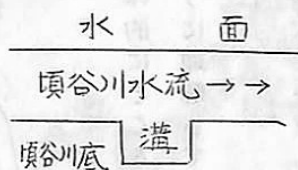 水面
頃谷川水流→→
溝
頃谷川底